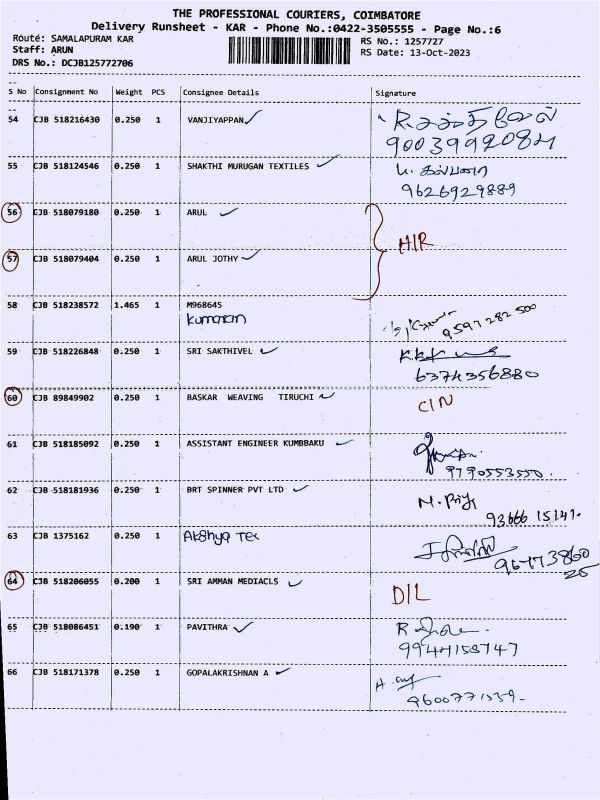 THE PROFESSIONAL COURIERS, COIMBATORE
Delivery Runsheet - KAR - Phone No.:0422-3505555 - Page No.:6
Route: SAMALAPURAM KAR
RS No.: 1257727
Staff: ARUN
RS Date: 13-Oct-2023
DRS No.: DCJB125772706
S No Consignment No Weight PCS Consignee Details Signature
54 CJB 518216430 0.250 1 VANJIYAPPAN
9003999208
55 CJB 518124546 0.250 1 SHAKTHI MURUGAN TEXTILES
9626929889
56 CJB 518079180 0.250 1 ARUL
HIR
57 CJB 518079404 0.250 1 ARUL JOTHY
58 CJB 518238572 1.465 1 M968645
Kumaran
9597282500
59 CJB 518226848 0.250 1 SRI SAKTHIVEL
6374356880
60 CJB 89849902 0.250 1 BASKAR WEAVING TIRUCHI
CIN
61 CJB 518185092 0.250 1 ASSISTANT ENGINEER KUMBBAKU
9790553550.
62 CJB 518181936 0.250 1 BRT SPINNER PVT LTD
M. Priya
93666 15141.
63 CJB 1375162 0.250 1 Akshya Tex
96773860
25
64 CJB 518206055 0.200 1 SRI AMMAN MEDIACLS
DIL
65 CJB 518086451 0.190 1 PAVITHRA
9944158747
66 CJB 518171378 0.250 1 GOPALAKRISHNAN A
9600771539-